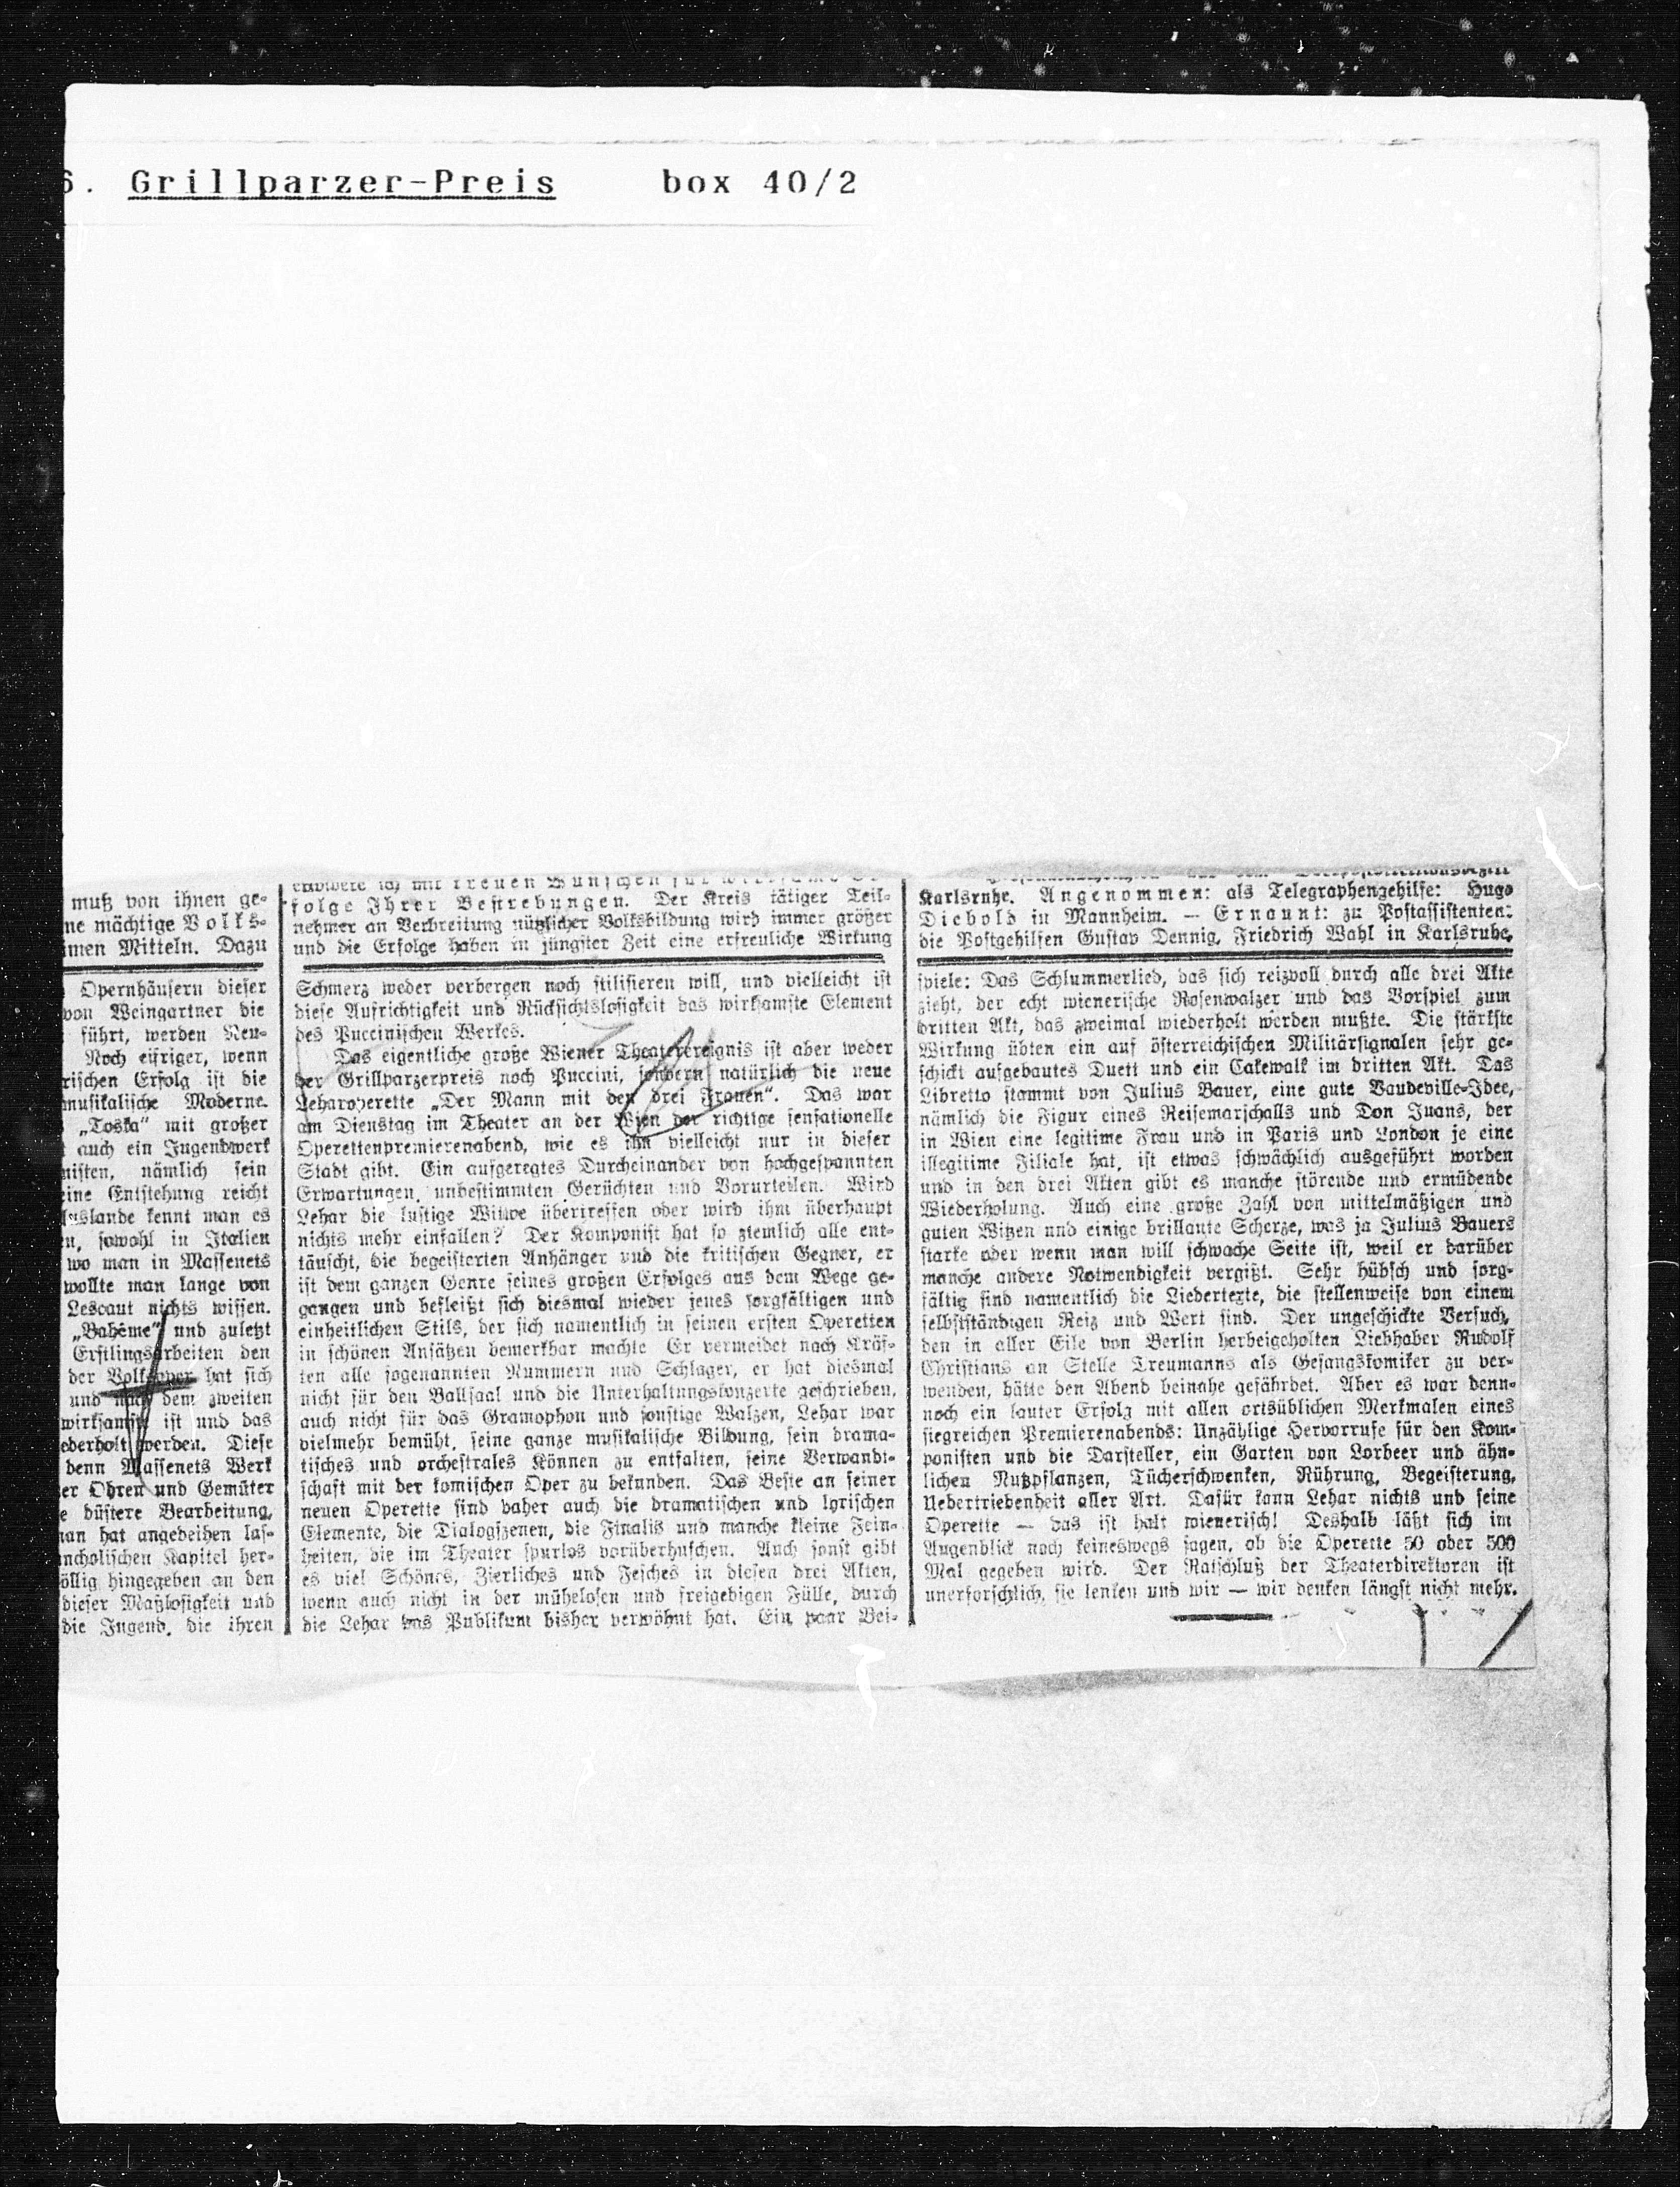 6. Grillparzer-Preis box 40/2
muß von ihnen ge-
ne mächtige Volks-
men Mitteln. Dazu
Opernhäusern dieser
von Weingartner die
führt, werden Neu-
Noch eifriger, wenn
rischen Erfolg ist die
musikalische Moderne.
„Toska“ mit großer
auch ein Jugendwerk
nisten, nämlich sein
eine Entstehung reicht
uslande kennt man es
n, sowohl in Italien
wo man in Massenets
wollte man lange von
Lescaut nichts wissen.
„Bahême“ und zuletzt
Erstlingsarbeiten den
der Volksoper hat sich
und nach dem zweiten
wirksamste ist und das
ederholt werden. Diese
denn Massenets Werk
er Ohren und Gemüter
e düstere Bearbeitung,
man hat angedeihen las-
ncholischen Kapitel her-
öllig hingegeben an den
dieser Maßlosigkeit und
die Jugend, die ihren
erwidere ich mit treuen Wünschen für
folge Ihrer Bestrebungen. Der Kreis tätiger Teil-
nehmer an Verbreitung nützlicher Volksbildung wird immer größer
und die Erfolge haben in jüngster Zeit eine erfreuliche Wirkung
Schmerz weder verbergen noch stilisieren will, und vielleicht ist
diese Aufrichtigkeit und Rücksichtslosigkeit das wirksamste Element
des Puccinischen Werkes.
Das eigentliche große Wiener Theaterereignis ist aber weder
der Grillparzerpreis noch Puccini, sondern natürlich die neue
Leharoperette „Der Mann mit den drei Frauen“. Das war
am Dienstag im Theater an der Wien der richtige sensationelle
Operettenpremierenabend, wie es ihn vielleicht nur in dieser
Stadt gibt. Ein aufgeregtes Durcheinander von hochgespannten
Erwartungen, unbestimmten Gerüchten und Vorurteilen. Wird
Lehar die lustige Witwe übertreffen oder wird ihm überhaupt
nichts mehr einfallen? Der Komponist hat so ziemlich alle ent-
täuscht, die begeisterten Anhänger und die kritischen Gegner, er
ist dem ganzen Genre seines großen Erfolges aus dem Wege ge-
gangen und befleißt sich diesmal wieder jenes sorgfältigen und
einheitlichen Stils, der sich namentlich in seinen ersten Operetten
in schönen Ansätzen bemerkbar machte Er vermeidet nach Kräf-
ten alle sogenannten Nummern und Schlager, er hat diesmal
nicht für den Ballsaal und die Unterhaltungskonzerte geschrieben,
auch nicht für das Gramophon und sonstige Walzen, Lehar war
vielmehr bemüht, seine ganze musikalische Bildung, sein drama-
tisches und orchestrales Können zu entfalten, seine Verwandt-
schaft mit der komischen Oper zu bekunden. Das Beste an seiner
neuen Operette sind daher auch die dramatischen und lyrischen
Elemente, die Dialogszenen, die Finalis und manche kleine Fein-
heiten, die im Theater spurlos vorüberhuschen. Auch sonst gibt
es viel Schönes, Zierliches und Fesches in diesen drei Akten,
wenn auch nicht in der mühelosen und freigebigen Fülle, durch
die Lehar das Publikum bisher verwöhnt hat. Ein paar Bei-
Karlsruhe. Angenommen: als Telegraphengehilfe: Hugo
Diebold in Mannheim. — Ernannt: zu Postassistenten:
die Postgehilfen Gustav Dennig, Friedrich Wahl in Karlsruhe,
spiele: Das Schlummerlied, das sich reizvoll durch alle drei Akte
zieht, der echt wienerische Rosenwalzer und das Vorspiel zum
dritten Akt, das zweimal wiederholt werden mußte. Die stärkste
Wirkung übten ein auf österreichischen Militärsignalen sehr ge-
schickt aufgebautes Duett und ein Cakewalk im dritten Akt. Das
Libretto stammt von Julius Bauer, eine gute Vaudeville-Idee,
nämlich die Figur eines Reisemarschalls und Don Juans, der
in Wien eine legitime Frau und in Paris und London je eine
illegitime Filiale hat, ist etwas schwächlich ausgeführt worden
und in den drei Akten gibt es manche störende und ermüdende
Wiederholung. Auch eine große Zahl von mittelmäßigen und
guten Witzen und einige brillante Scherze, was ja Julius Bauers
starke oder wenn man will schwache Seite ist, weil er darüber
manche andere Notwendigkeit vergißt. Sehr hübsch und sorg-
fältig sind namentlich die Liedertexte, die stellenweise von einem
selbstständigen Reiz und Wert sind. Der ungeschickte Versuch,
den in aller Eile von Berlin herbeigeholten Liebhaber Rudolf
Christians an Stelle Treumanns als Gesangskomiker zu ver-
wenden, hätte den Abend beinahe gefährdet. Aber es war denn-
noch ein lauter Erfolg mit allen ortsüblichen Merkmalen eines
siegreichen Premierenabends: Unzählige Hervorrufe für den Kom-
ponisten und die Darsteller, ein Garten von Lorbeer und ähn-
lichen Nutzpflanzen, Tücherschwenken, Rührung, Begeisterung,
Uebertriebenheit aller Art. Dafür kann Lehar nichts und seine
Operette — das ist halt wienerisch! Deshalb läßt sich im
Augenblick noch keineswegs sagen, ob die Operette 50 oder 500
Mal gegeben wird. Der Ratschluß der Theaterdirektoren ist
unerforschlich, sie lenken und wir — wir denken längst nicht mehr.